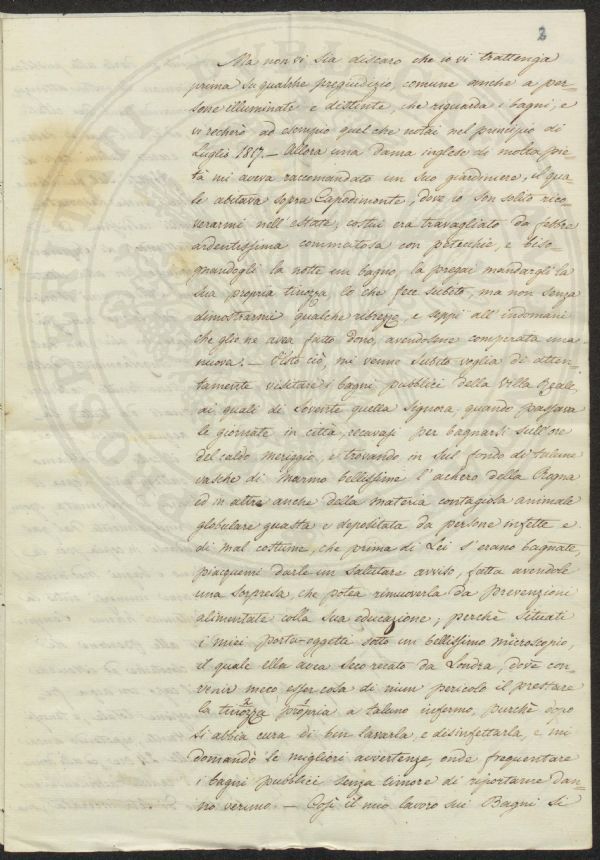 2
Ma non vi sia discaro che io vi trattenga
prima su qualche pregiudizio, comune anche a per=
sone illuminate e distinte, che riguarda i bagni, e
vi recherò ad esempio quel che notai nel principio di
Luglio 1817. — Allora una dama inglese di molta pie=
tà mi aveva raccomandato un suo giardiniere, il qua=
le abitava sopra Capodimonte, dove io son solito rico=
verarmi nell'estate, costui era travagliato da febbre
ardentissima con petecchie, e biso=
gnandogli la notte un bagno, la pregai mandargli la
sua propria tinozza, lo che fece subito, ma non senza
dimostrarmi qualche ribrezzo, e seppi all'indomani
che glie ne avea fatto dono, avendosene comperata una
nuova. — Visto ciò, mi venne subito voglia di atten=
tamente visitare i bagni pubblici della Villa Reale,
ai quali di sovente quella signora, quando passava
le giornate in città, recavasi per bagnarsi sull'ore
del caldo meriggio, e trovando in sul fondo di talune
vasche di marmo bellissime l'achoro della Regna
ed in altre anche della materia contagiosa animale
globulare guasta e depositata da persone infette e
di mal costume, che prima di Lei s'erano bagnate,
piacquemi darle un salutare avviso, fatta avendole
una sorpresa che potea rimuoverla da prevenzioni
alimentate colla sua educazione, perchè situati
i miei porta-oggetti sotto un bellissimo microscopio,
il quale ella avea seco recato da Londra, dové con=
venir meco esser cosa di niun pericolo il prestare
la tinozza propria a taluno infermo, purchè dopo
si abbia cura di ben lavarla, e disinfettarla, e mi
domandò le migliori avvertenze, onde frequentare
i bagni pubblici senza timore di riportarne dan=
no veruno. — Così il mio lavoro sui Bagni si